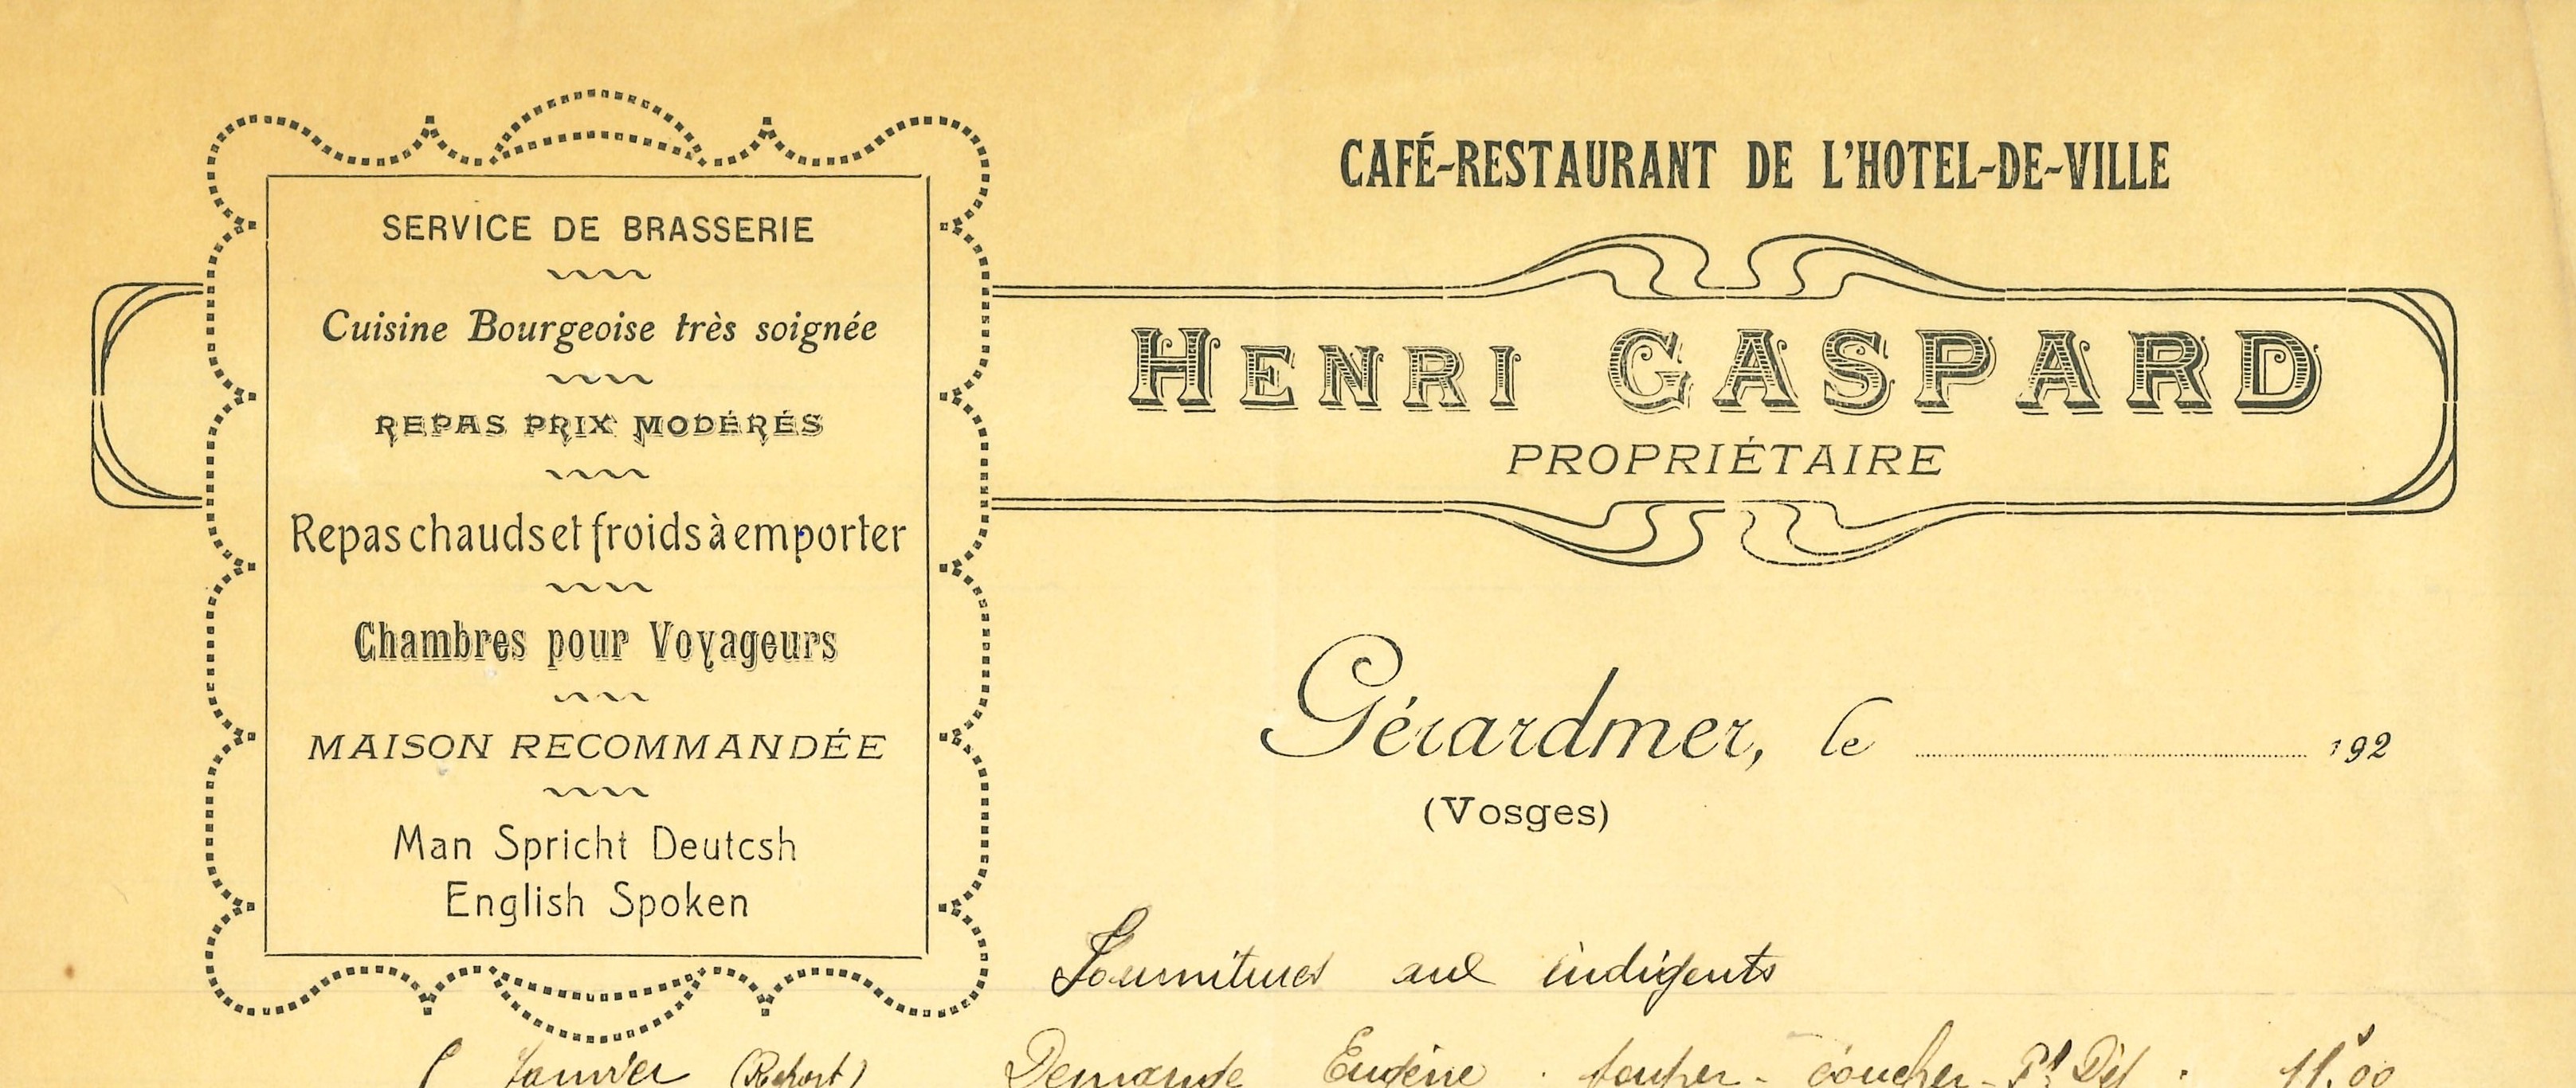 CAFÉ-RESTAURANT DE L'HOTEL-DE-VILLE
HENRI GASPARD
PROPRIÉTAIRE
SERVICE DE BRASSERIE
Cuisine Bourgeoise très soignée
REPAS PRIX MODÉRÉS
Repas chauds et froids à emporter
Chambres pour Voyageurs
MAISON RECOMMANDÉE
Man Spricht Deutcsh
English Spoken
Gérardmer, le 192
(Vosges)
Fournitures aux indigents
Janvier Demange Eugène souper - coucher - Pt Déj 11.00